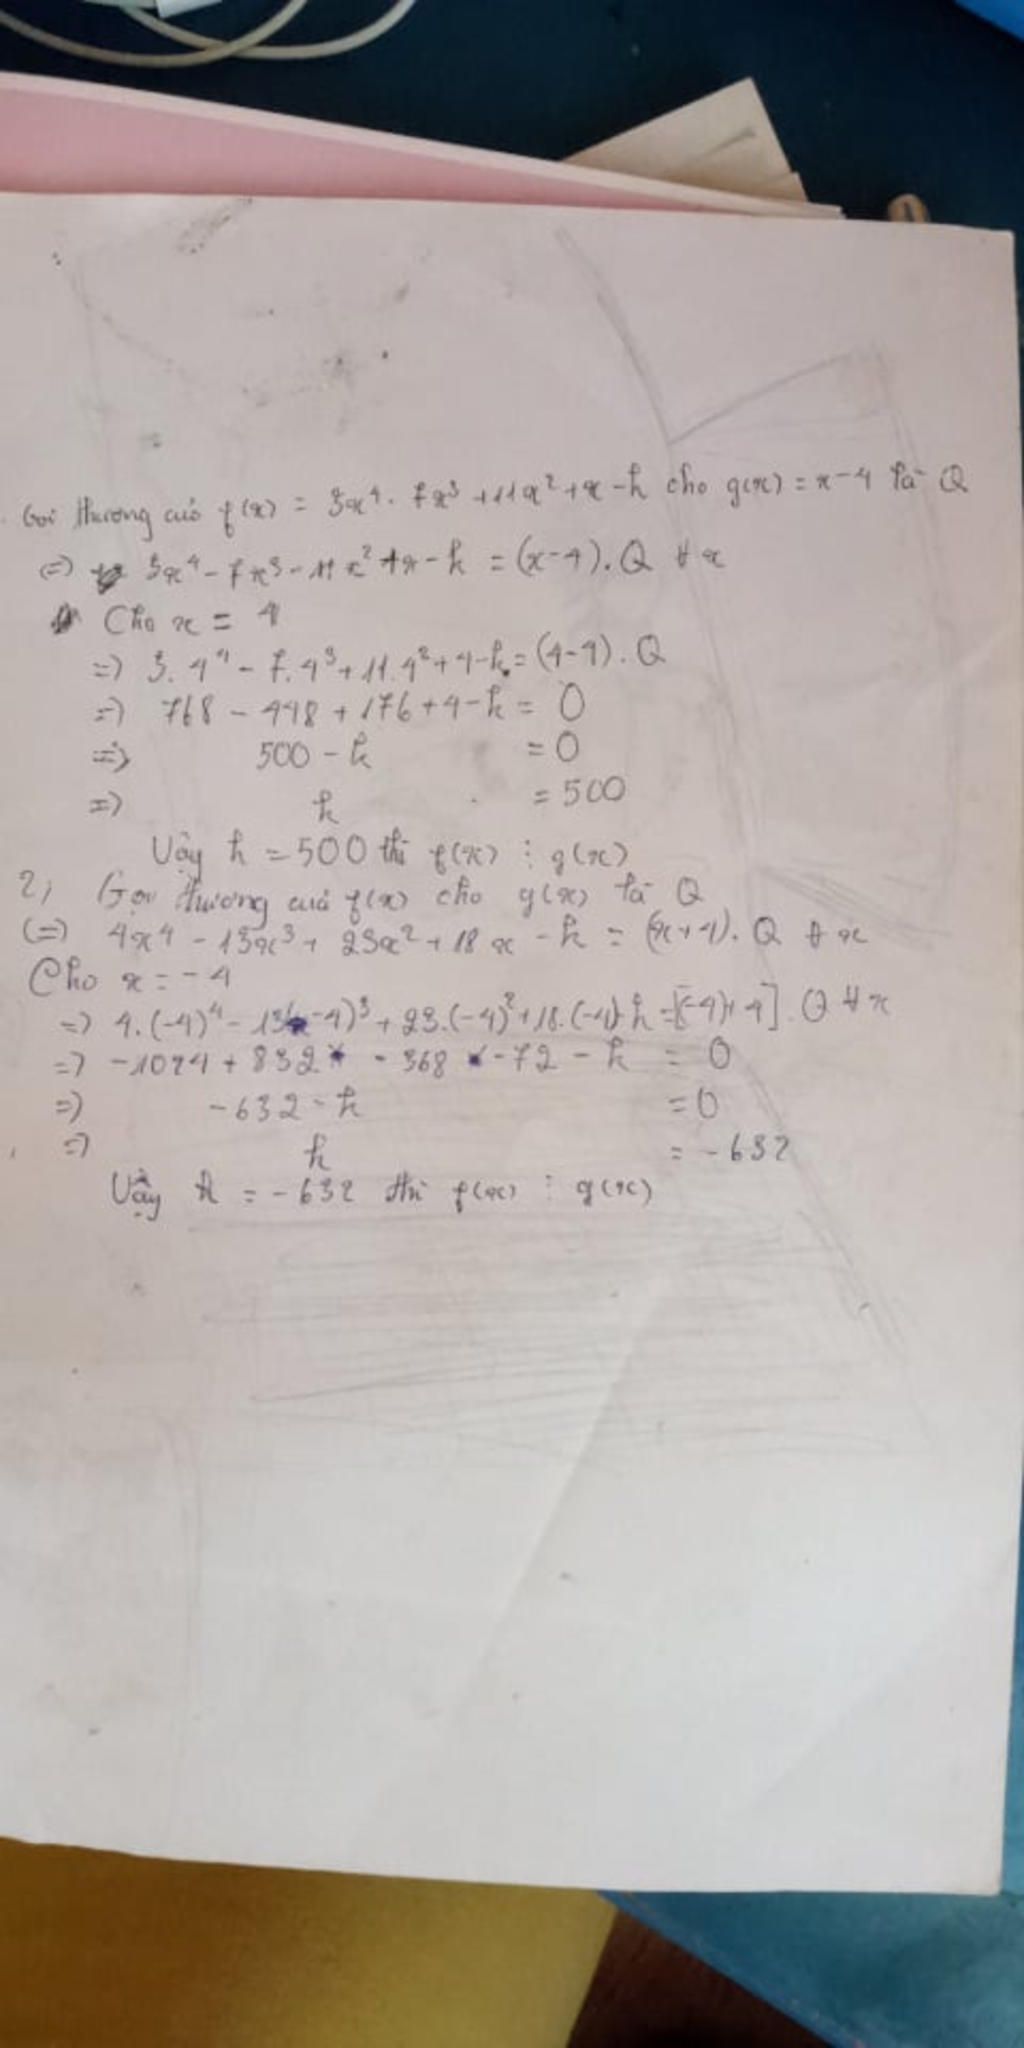 Gọi thương của f(x) = 3x⁴ - 7x³ + 11x² + x - k cho g(x) = x - 4 là Q
(=) 3x⁴ - 7x³ - 11x² + x - k = (x-4).Q ∀x
Cho x = 4
=) 3.4⁴ - 7.4³ + 11.4² + 4 - k = (4-4).Q
=) 768 - 448 + 176 + 4 - k = 0
=) 500 - k = 0
=) k = 500
Vậy k = 500 thì f(x) ⋮ g(x)
2, Gọi thương của f(x) cho g(x) là Q
(=) 4x⁴ - 13x³ + 23x² + 18x - k = (x+4).Q ∀x
Cho x = -4
=) 4.(-4)⁴ - 13(-4)³ + 23.(-4)² + 18.(-4) - k = [(-4)+4].Q ∀x
=) -1024 + 832 - 368 - 72 - k = 0
=) -632 - k = 0
=) k = -632
Vậy k = -632 thì f(x) ⋮ g(x)